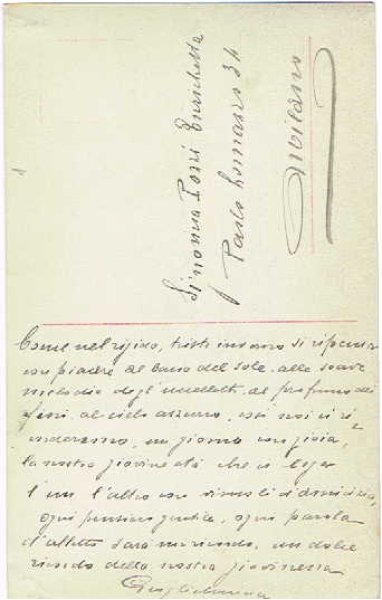 Signorina Poni Enrichetta
Paolo Lomazzo 34
Milano
Come nel rigido, triste inverno si ripensa
con piacere al bacio del sole, alle soave
melodie degli uccelletti, al profumo dei
fiori, al cielo azzurro, così noi ci ri
corderemo, un giorno con gioia,
la nostra giovine età che ci lega
l'un l'altro con vincoli d'amicizia,
ogni pensiero gentile, ogni parola
d'affetto sarà un ricordo, un dolce
ricordo della nostra giovinezza
Guglielmina